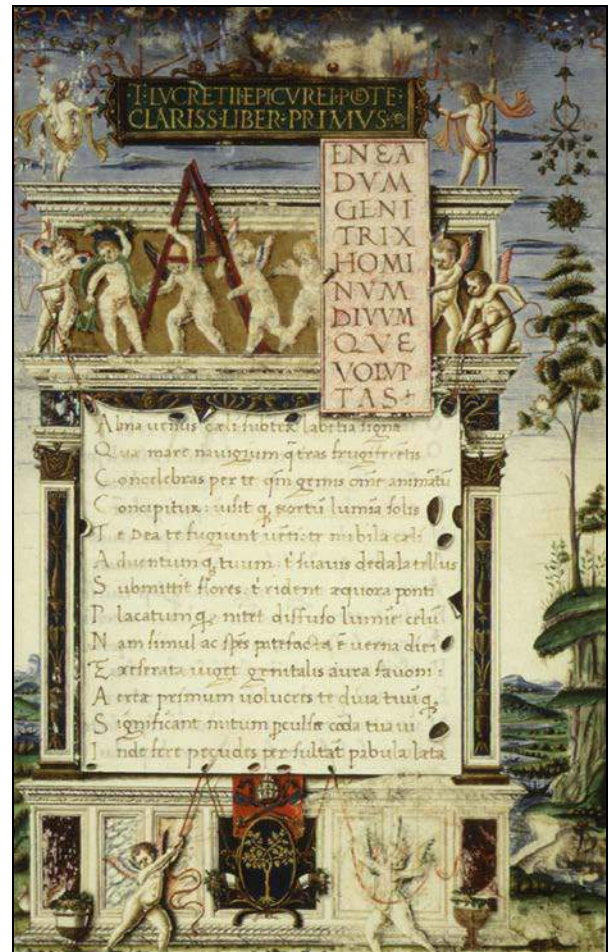 T·LVCRETII·EPICVREI·POTE·
CLARISS·LIBER·PRIMVS·
A
ENEA
DVM
GENI
TRIX
HOMI
NVM
DIVVM
QVE
VOLVP
TAS
Alma venus cæli subter labētia signa
Quæ mare navigium q̄ terras frugiferētis
Concelebras per te qm̄ genus om̄e animātū
Concipitur: visit q̨ exortū lumīa solis
Te Dea te fugiunt vēti: te nubila cæli
Adventum q̨ tuum: t' suavis dedala tellus
Submittit flores: t' rident æquora ponti
Placatum q̨ nitet diffuso lumīe celū
Nam simul ac spēs patefacta ē verna diei
Et reserata viget genitalis aura favoni:
Aeriæ primum volucres te diva tuū q̨
Significant initum pculsæ corda tua vi
Inde fere pecudes per sultāt pabula læta